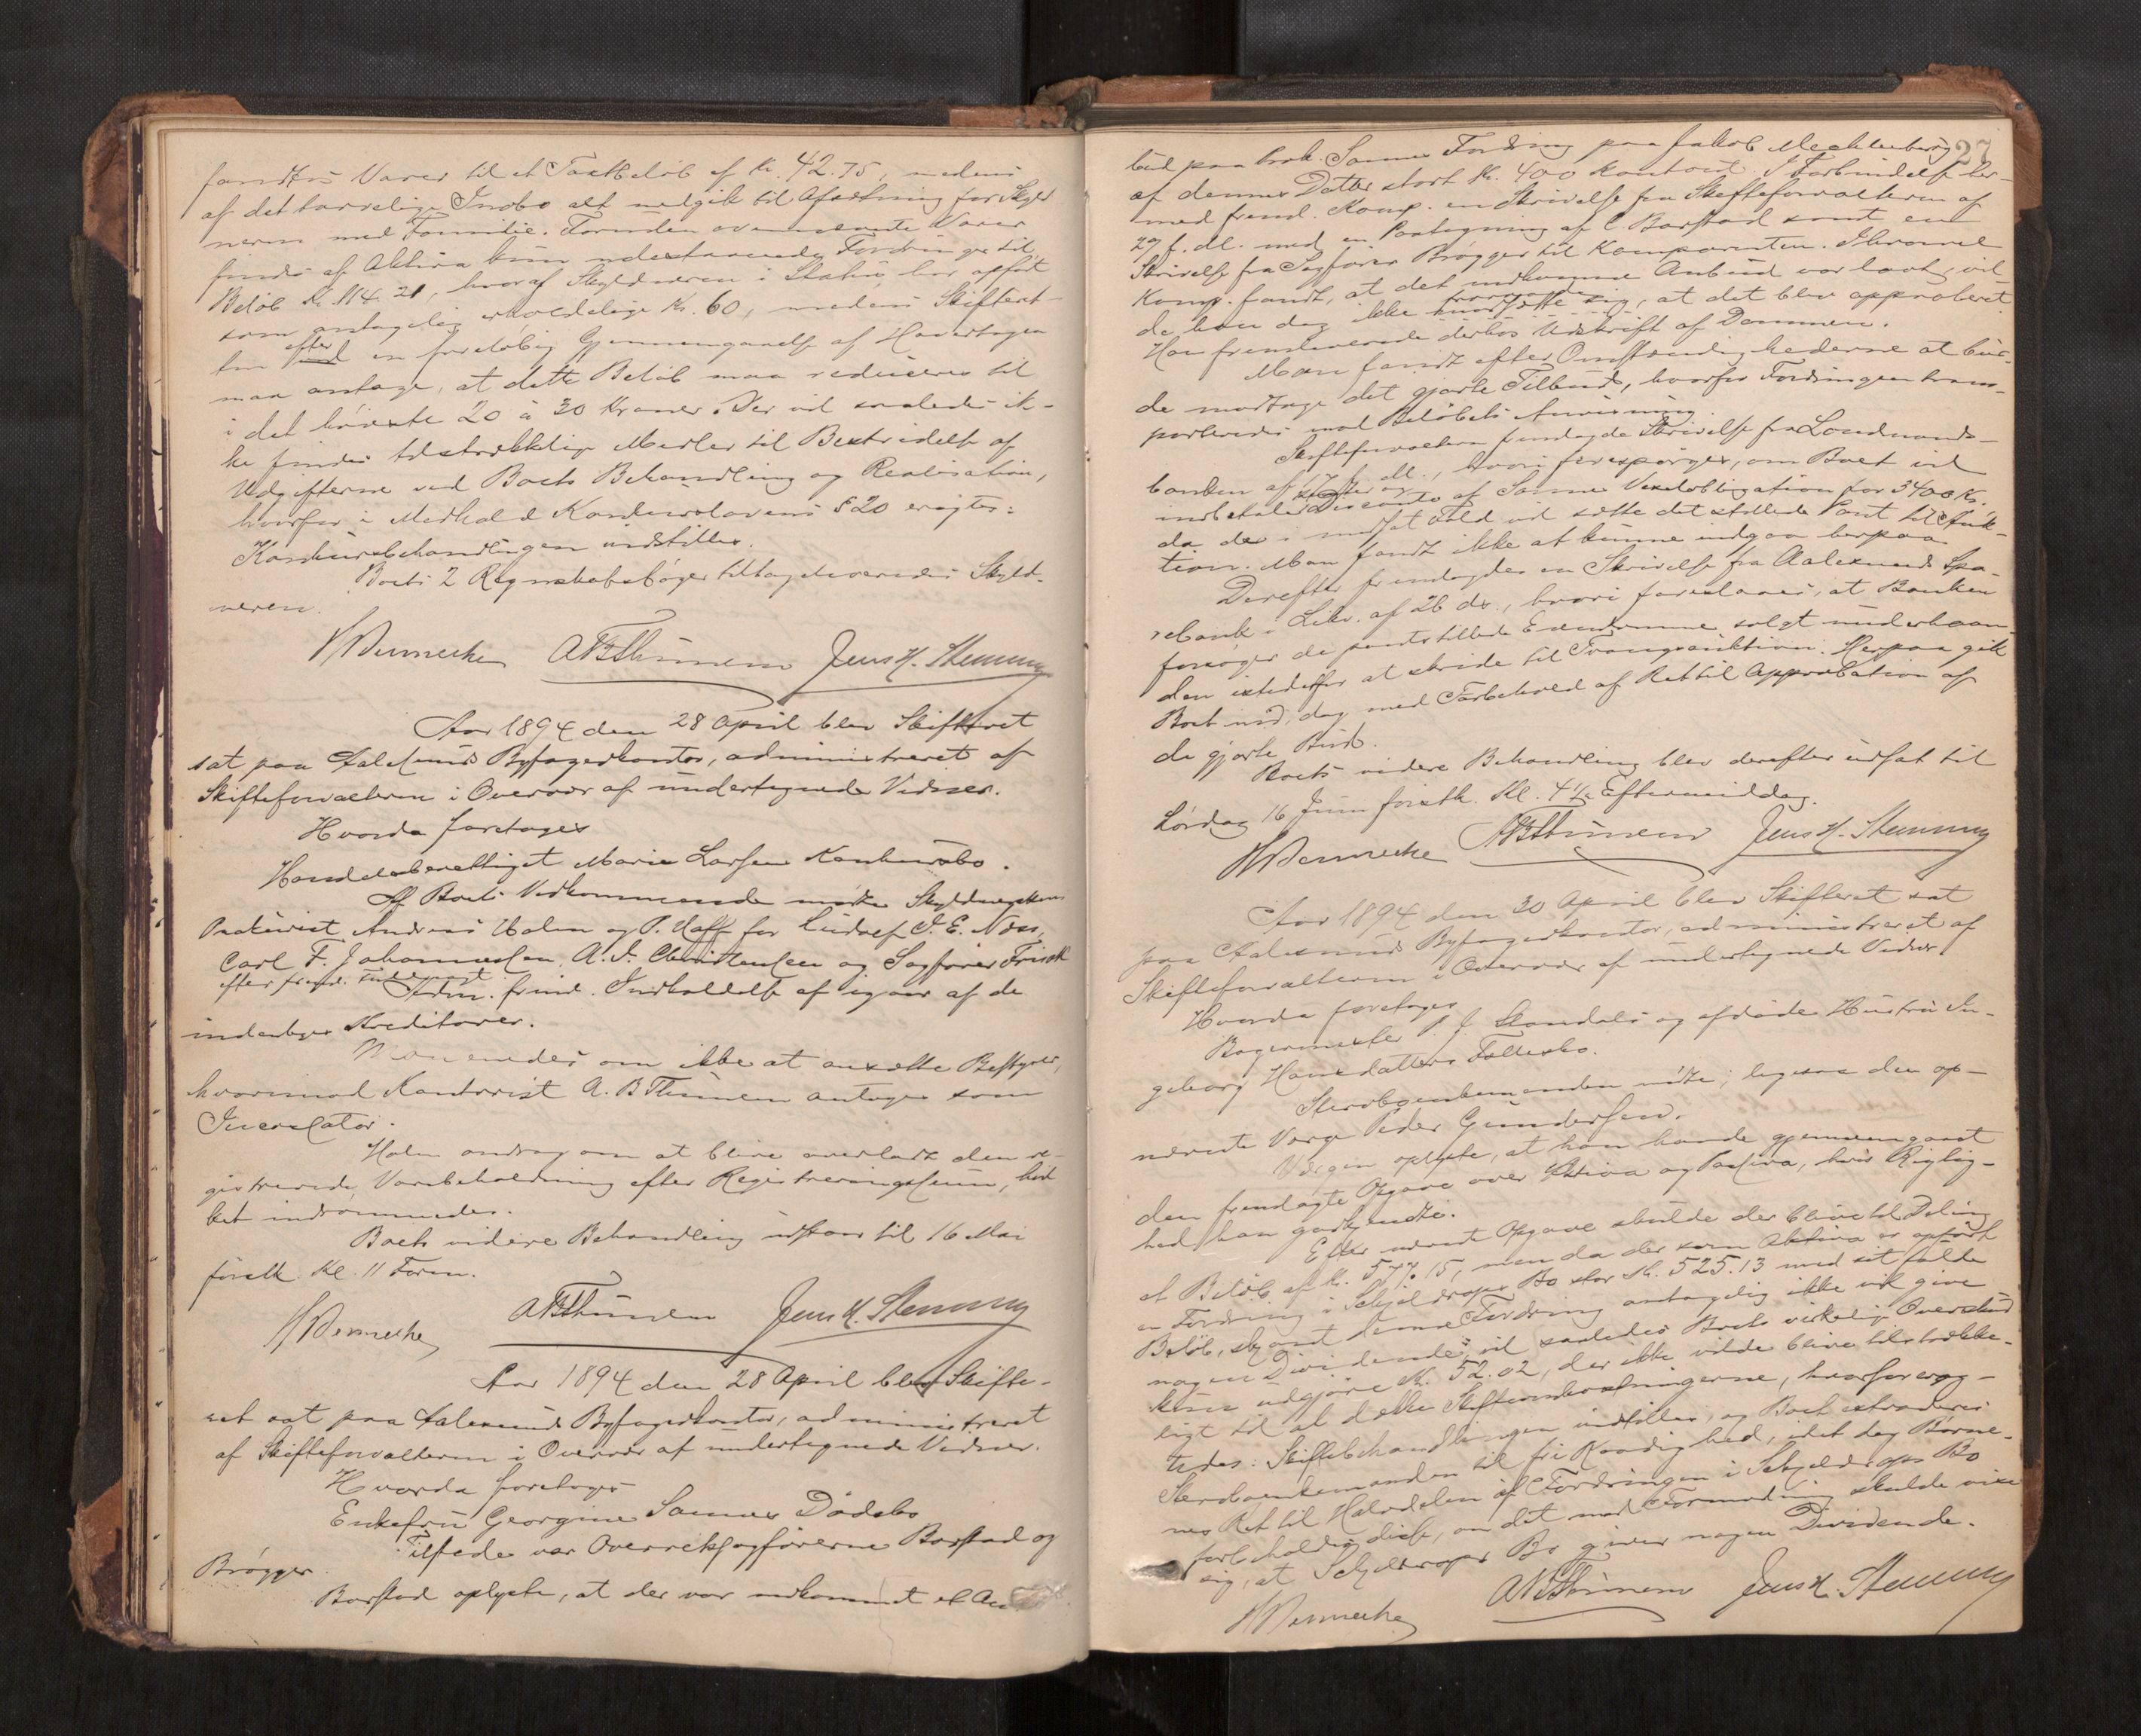 fandtes Varer til et Taxtbeløb af Kr. 42.75, medens
af det løsørelige Indbo alt medgik til Afsætning for Skyld
neren med Familie. Foruden ovennævnte Varer
findes af Aktiva kun udestaaende Fordringer til
Beløb Kr. 114.21, hvoraf Skyldneren i Status har opført
som antagelig erholdelige Kr. 60, medens Skifteret-
ten efter en foreløbig Gjennemgaaelse af Hovedbogen
maa antage, at dette Beløb maa reduceres til
i det høieste 20 à 30 Kroner. Der vil saaledes ik-
ke findes tilstrækkelige Midler til Bestridelse af
Udgifterne ved Boets Behandling og Realisation,
hvorfor i Medhold Konkurslovens § 20 eragtes:
Konkursbehandlingen indstilles.
Boets 2 Regnskabsbøger tilbageleveredes Skyld-
neren.
ABThünem Jens H. Stemung
Aar 1894 den 28 April blev Skifteret
sat paa Aalesunds Byfogedkontor, administreret af
Skifteforvalteren i Overvær af undertegnede Vidner.
Hvorda foretoges
Handelsberettiget Marie Larsens Konkursbo.
Af Boets Vedkommende mødte Skyldnerskens
Prokurist Andreas Holm og P. Hoff for Ludolf J. E. Næss,
Carl F. Johannessen, A. S. Christensen og Sagfører Frisak
efter freml. Fuldmagt
Adm. freml. Indkaldelse af igaar af de
indenbyes Kreditorer.
Man enedes om ikke at ansætte Bestyrer,
hvorimod Kontorist A. B Thünem antoges som
Incassator.
Holm androg om at blive overladt den re-
gistrerede Varebeholdning efter Registreringssum, hvil
ket indrømmedes.
Boets videre Behandling udstaar til 16 Mai
førstk. Kl. 11 Form.
ABThünem Jens H. Stemung
Aar 1894 den 28 April blev Skifte-
ret sat paa Aalesunds Byfogedkontor, administreret
af Skifteforvalteren i Overvær af undertegnede Vidner.
Hvorda foretoges
Enkefru Georgine Sannes Dødsbo
Tilstede var Overretssagførerne Barstad og
Brøgger.
Barstad oplyste, at der var indkommet et An
27
bud paa Sannes Fordring paa Jakob Mechlenburg
af dennes Datter stort Kr. 400 kontant. I Forbindelse her-
med freml. Komp. en Skrivelse fra Skifteforvalteren af
27 f. M. med en Paategning af C. Barstad samt en
Skrivelse fra Sagfører Brøgger til Komparenten. Ihvorvel
Komp. fandt, at det indkomne Anbud var lavt, vil
de han dog ikke modsætte sig, at det blev approberet.
Han fremleverede derhos Udskrift af Dommen.
Man fandt efter Omstændighederne at bur-
de modtage det gjorte Tilbud, hvorfor Fordringen trans-
porteredes mod Beløbets Anvisning.
Skifteforvalteren fremlagde Skrivelse fra Landmands-
banken af 17 f. M., hvori forespørges, om Boet vil
indbetale Renter og Disconto af Sannes Vexelobligation for 3400 Kr.
da den i modsat Fald vil sætte det stillede Pant til Auk-
tion. Man fandt ikke at kunne indgaa herpaa
Derefter fremlagdes en Skrivelse fra Aalesunds Spa-
rebank i Likv. af 26 ds., hvori foreslaaes, at Banken
forsøger de pantstillede Eiendomme solgt underhaan-
den istedetfor at skride til Tvangsauktion. Herpaa gik
Boet ind, dog med Forbehold af Ret til Approbation af
de gjorte Bud.
Boets videre Behandling blev derefter udsat til
Lørdag 16 Juni førstk. Kl. 4½ Eftermiddag.
ABThünem Jens H. Stemung
Aar 1894 den 30 April blev Skifteret sat
paa Aalesunds Byfogedkontor, administreret af
Skifteforvalteren i Overvær af undertegnede Vidner
Hvorda foretoges
Bagermester P. J. Standals og afdøde Hustru In-
geborg Hansdatters Fællesbo.
Stervboenkemanden mødte; ligesaa den op-
nævnte Værge Peder Gundersen.
Værgen oplyste, at han havde gjennemgaaet
den fremlagte Opgave over Aktiva og Passiva, hvis Rigtig-
hed han godkjendte.
Efter nævnte Opgave skulde der blive til Deling
et Beløb af Kr. 577.15, men da der som Aktiva er opført
en Fordring i Schjeldrops Bo stor Kr. 525.13 med sit fulde
Beløb, skjønt denne Fordring antagelig ikke vil give
nogen Dividende, vil saaledes Boets virkelige Overskud
kun udgjøre Kr. 52.02, der ikke vilde blive tilstrække-
ligt til at dække Skifteomkostningerne, hvorfor erag-
tedes: Skiftebehandlingen indstilles, og Boet extraderes
Stervboenkemanden til fri Raadighed, idet dog Børne-
nes Ret til Halvdelen af Fordringen i Schjeldrops Bo
forbeholdes disse, om det mod Formodning skulde vise
sig, at Schjeldrops Bo giver nogen Dividende.
ABThünem Jens H. Stemung